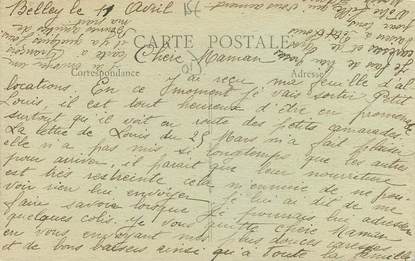 Belley le 19 Avril 15
CARTE POSTALE
Chère Maman
Correspondance
Adresse
j'ai reçu ma feuille d'al
locations. En ce moment je vais sortir Petit
Louis, il est tout heureux d'être en promenade
surtout qu'il voit en route des petits camarades.
La lettre de Louis du 25 Mars m'a fait plaisir
elle n'a pas mis si longtemps que les autres
pour arriver, il parait que leur nourriture
est très restreinte cela m'ennuie de ne pou-
voir rien lui envoyer je lui ai dit de me
faire savoir lorsque je pourrais lui adresser
quelques colis. je vous quitte chère Maman
en vous envoyant mes plus douces caresses
et de bons baisers ainsi qu'à toute la famille